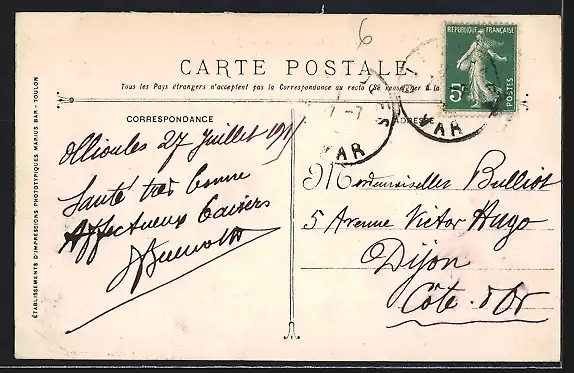 6
RÉPUBLIQUE FRANÇAISE
5c
POSTES
CARTE POSTALE
Tous les Pays étrangers n'acceptent pas la Correspondance au recto (Se renseigner à la
CORRESPONDANCE
ADRESSE
7-7
VAR
VAR
Ollioules 27 Juillet 1911
Santé très bonne
Affectueux baisers
Mesdemoiselles Bulliot
5 Avenue Victor Hugo
Dijon
Côte-d'Or
ÉTABLISSEMENTS D'IMPRESSIONS PHOTOTYPIQUES MARIUS BAR - TOULON